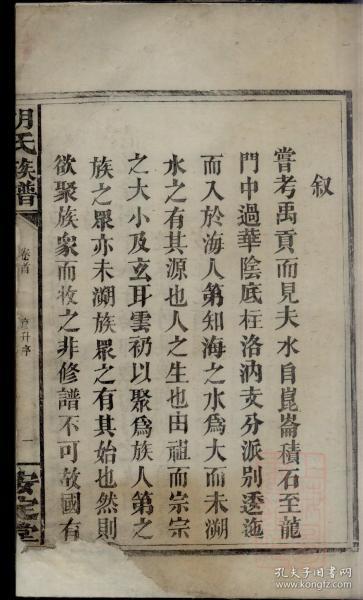 叙
嘗考禹貢而見夫水自崑崙積石至龍
門中過華陰底柱洛汭支分派別逶迤
而入於海人第知海之水爲大而未溯
水之有其源也人之生也由祖而宗宗
之大小及玄耳雲礽以聚爲族人第之
族之眾亦未溯族眾之有其始也然則
欲聚族眾而牧之非修譜不可故國有
胡氏族譜
卷首
序
一
安定堂
孔夫子旧书网